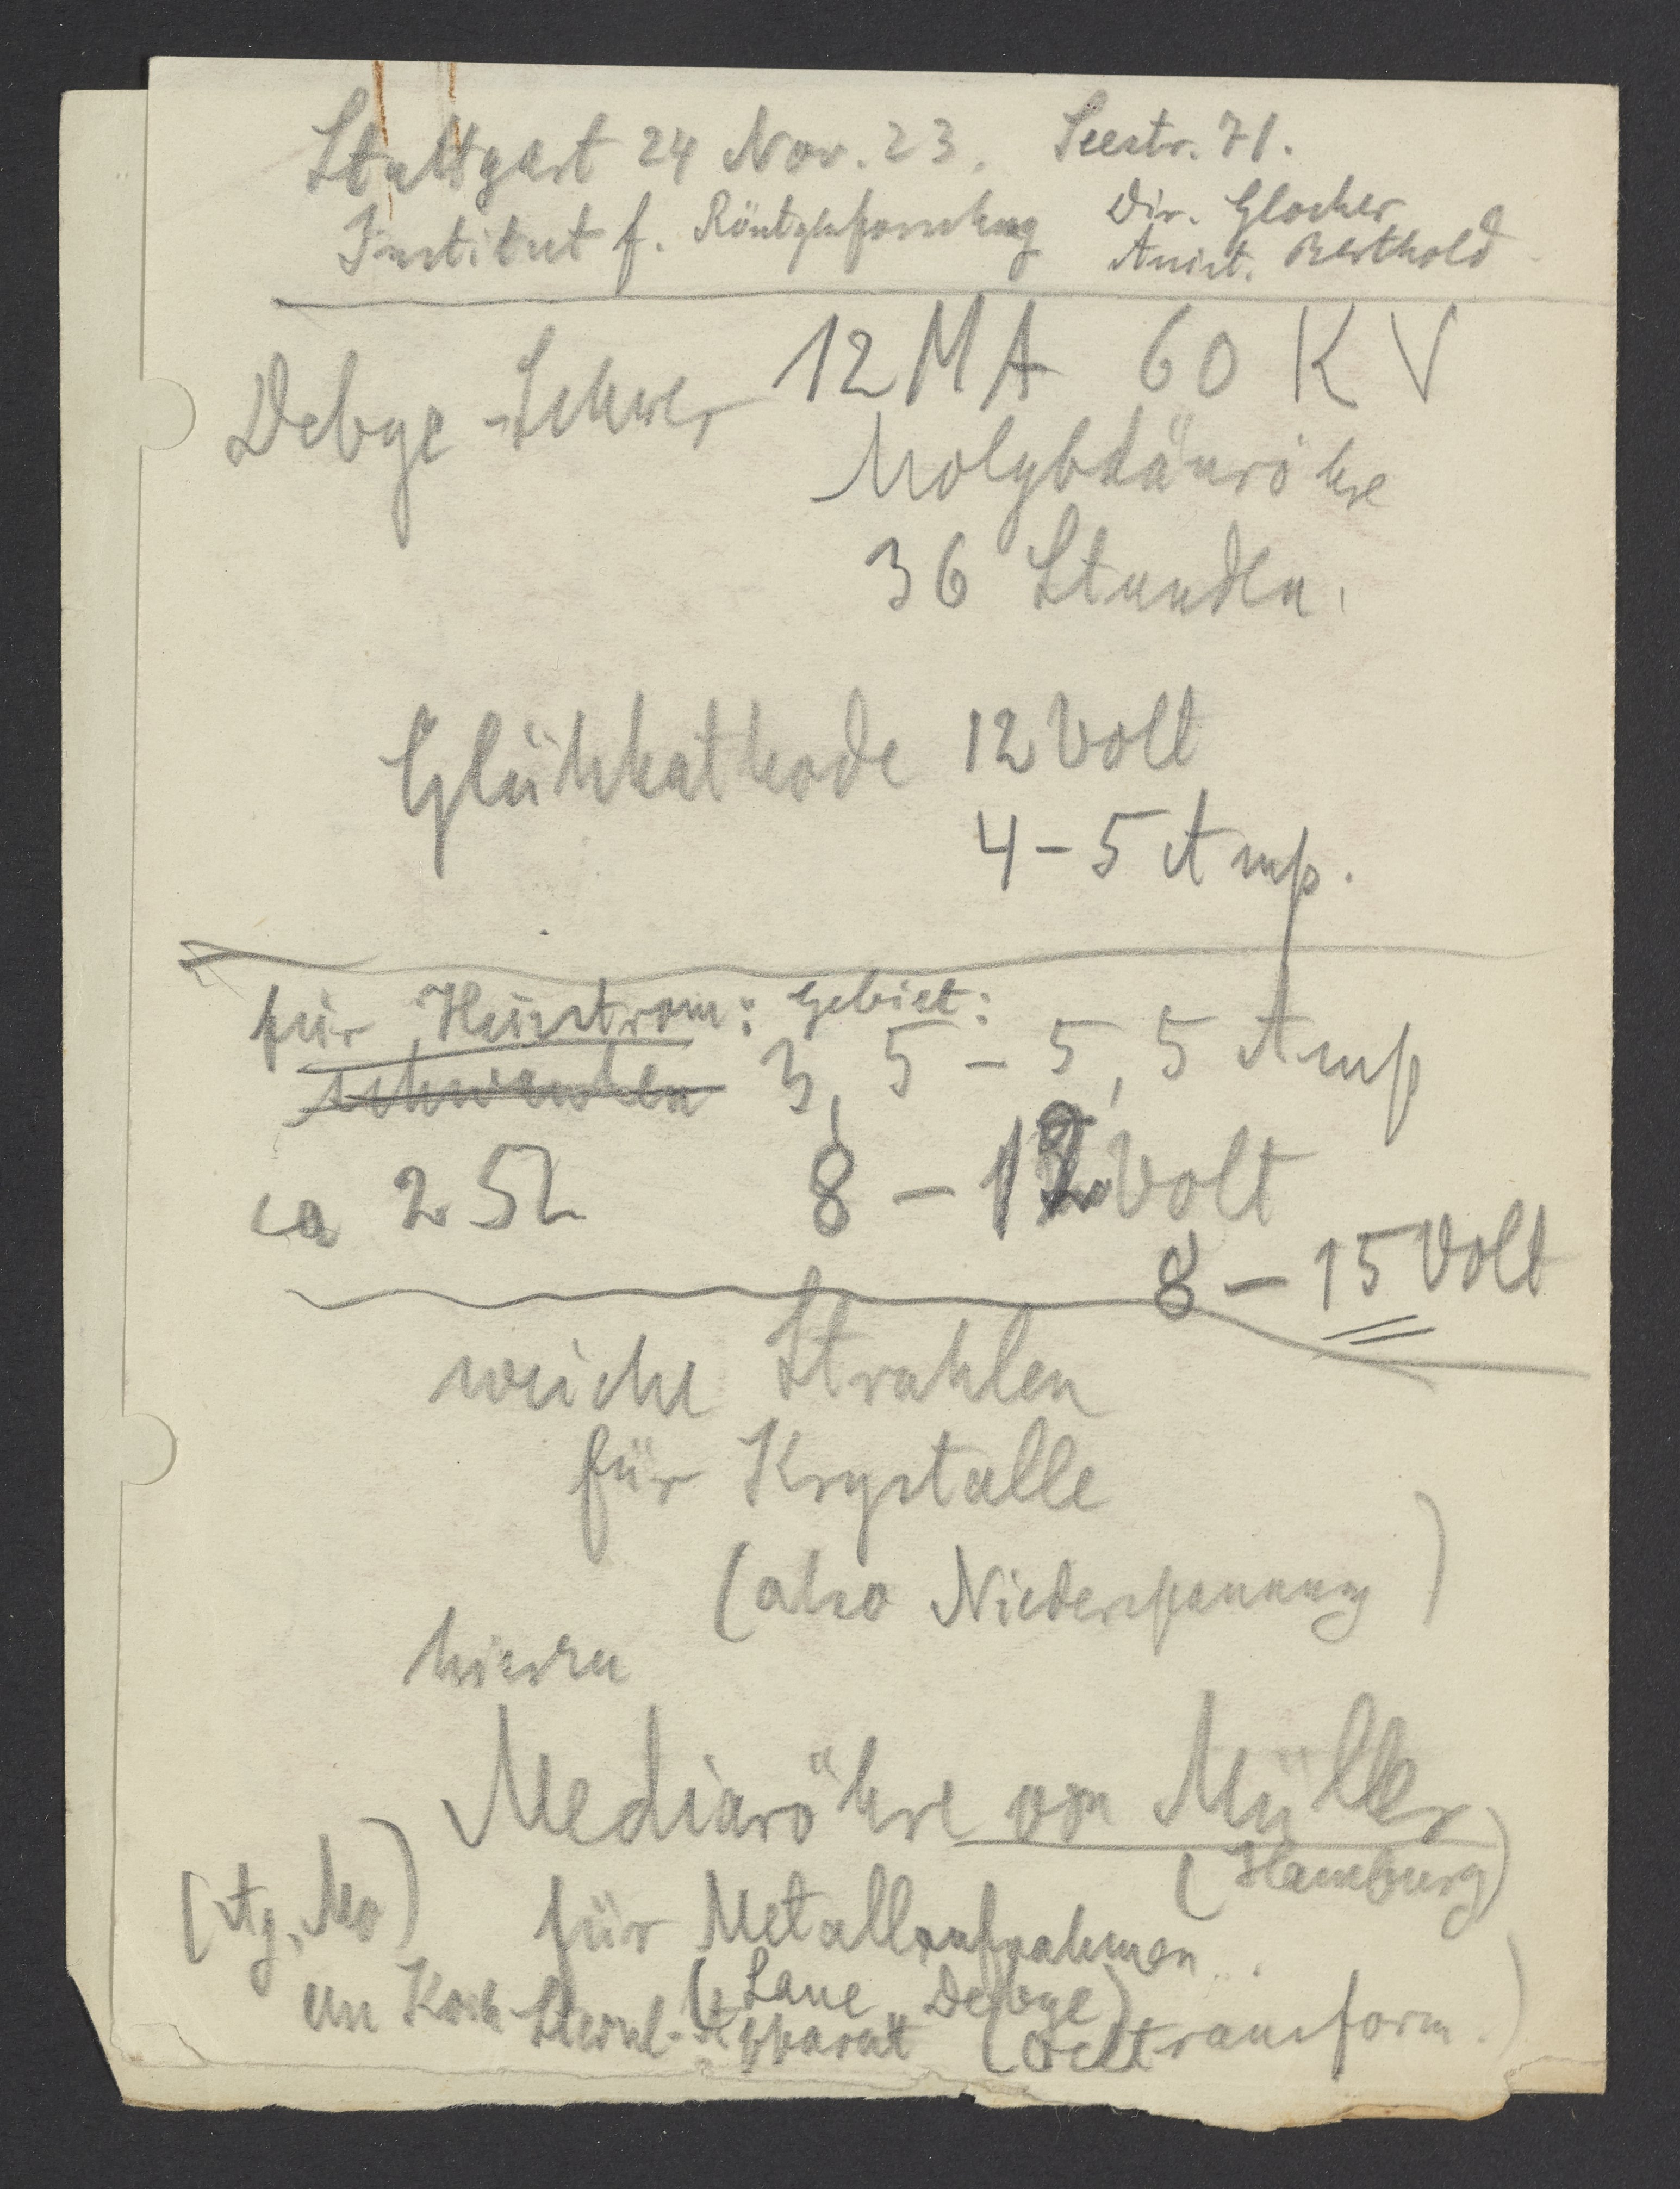 Stuttgart 24 Nov. 23. Seestr. 71.
Institut f. Röntgenforschung Dir. Glocker
Assist. Berthold
Debye-Scherrer 12 MA 60 KV
Molybdänröhre
36 Stunden.
Glühkathode 12 Volt
4-5 Amp.
für Heizstrom: Gebiet:
3,5 - 5,5 Amp
ca 2 Ω 8 - 12 Volt
8 - 15 Volt
weiche Strahlen
für Krystalle
(also Niederspannung)
hierzu
Mediaröhre von Müller
(Hamburg)
(Ag, Mo) für Metallaufnahmen.
(Laue, Debye)
Koch Sterzel-Apparat (Oeltransform.)